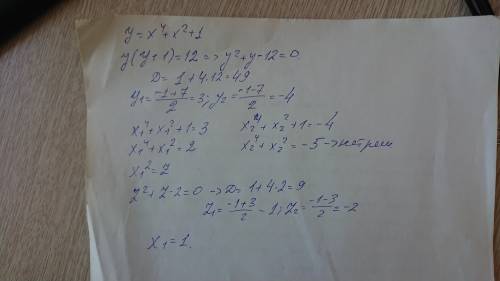 y = x⁴ + x² + 1
y(y+1) = 12 => y² + y - 12 = 0.
D = 1 + 4·12 = 49
y₁ = (-1+7)/2 = 3; y₂ = (-1-7)/2 = -4
x₁⁴ + x₁² + 1 = 3 x₂⁴ + x₂² + 1 = -4
x₁⁴ + x₁² = 2 x₂⁴ + x₂² = -5 →
x₁² = Z
Z² + Z - 2 = 0 → D = 1 + 4·2 = 9
Z₁ = (-1+3)/2 - 1; Z₂ = (-1-3)/2 = -2
x₁ = 1.